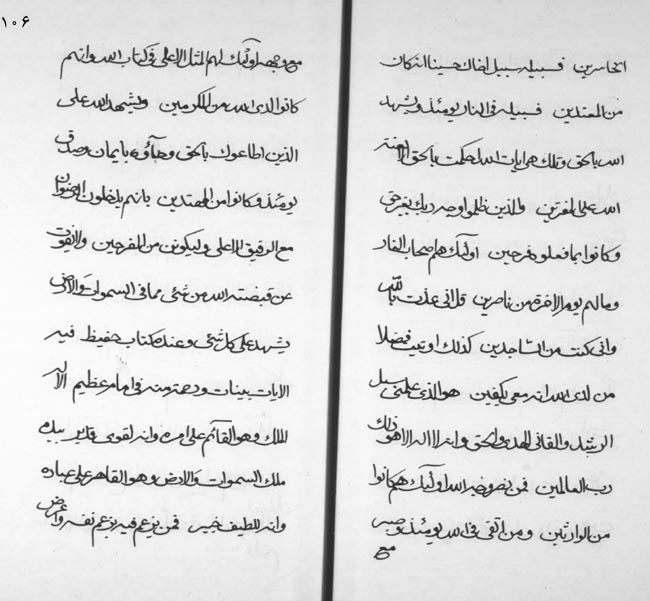 ١٠۶
الخاسرين فسبيله سبيل افاك حسيبا انه كان
من المعتدين فسبيله فى النار يومئذ ويشهد
الله بالحق وتلك هى ايات الله احكمت بالحق
الله على المفترين والذين ظلموا وجه ربك بغير حق
وكانوا بما فعلوه فرحين اولئك هم اصحاب النار
ومالهم يوم الاخرة من ناصرين قل انى عذت بالله
وانى كنت من الساجدين كذلك اوتيت فضلا
من لدى الله انه معى يكفين هو الذى علمنى سبل
الرشد والقانى الهدى والحق وانه لا اله الا هو ذلك
رب العالمين فمن ينصر وجه الله اولئك هم كانوا
من الوارثين ومن اتقى فى الله يومئذ وصبر
مع
مع وجهه اولئك لهم المثل الاعلى فى كتاب الله وانهم
كانوا لدى الله من المكرمين ويشهد الله على
الذين اطاعوك بالحق وجاؤه بايمان وصدق
يومئذ وكانوا من المهتدين بانهم يدخلون الرضوان
مع الرفيق الاعلى وليكونن من المفرحين ولا يفوت
عن قبضته الله من شئ مما فى السموات والارض
يشهد على كل شئ وعنده كتاب حفيظ فيه
الايات بينات ورحمة منه فى امام عظيم الا له
الملك وهو القائم على امره وانه لقوى قدير بيده
ملك السموات والارض وهو القاهر على عباده
وانه للطيف خبير فمن يزعم فيه بزعم نفسه واعرض